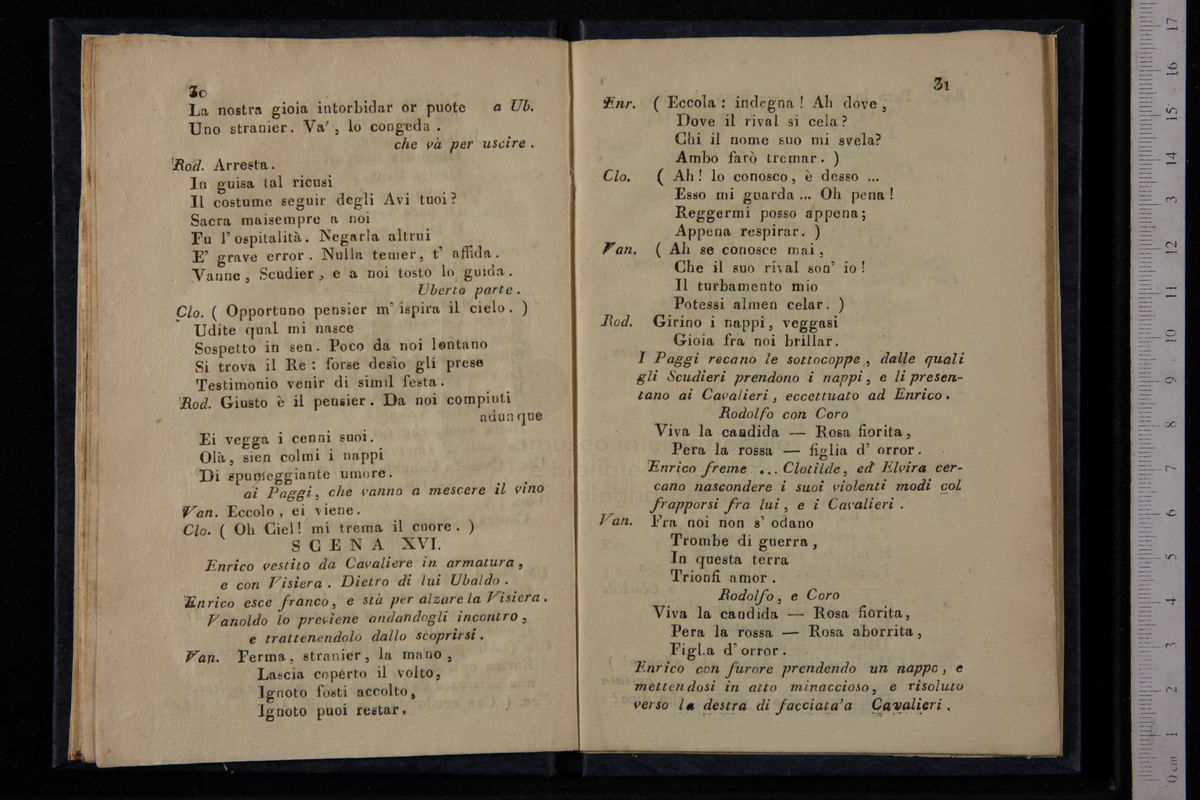 30
La nostra gioia intorbidar or puote a Ub.
Uno stranier. Va', lo congeda.
che và per uscire.
Rod. Arresta.
In guisa tal ricusi
Il costume seguir degli Avi tuoi?
Sacra maisempre a noi
Fu l'ospitalità. Negarla altrui
E' grave error. Nulla temer, t' affida.
Vanne, Scudier, e a noi tosto lo guida.
Uberto parte.
Clo. ( Opportuno pensier m' ispira il cielo. )
Udite qual mi nasce
Sospetto in sen. Poco da noi lontano
Si trova il Re: forse desìo gli prese
Testimonio venir di simil festa.
Rod. Giusto è il pensier. Da noi compiuti
adunque
Ei vegga i cenni suoi.
Olà, sien colmi i nappi
Di spumeggiante umore.
ai Paggi, che vanno a mescere il vino
Van. Eccolo, ei viene.
Clo. ( Oh Ciel! mi trema il cuore. )
SCENA XVI.
Enrico vestito da Cavaliere in armatura,
e con Visiera. Dietro di lui Ubaldo.
Enrico esce franco, e stà per alzare la Visiera.
Vanoldo lo previene andandogli incontro,
e trattenendolo dallo scoprirsi.
Van. Ferma, stranier, la mano,
Lascia coperto il volto,
Ignoto fosti accolto,
Ignoto puoi restar.
31
Enr. ( Eccola: indegna! Ah dove,
Dove il rival si cela?
Chi il nome suo mi svela?
Ambo farò tremar. )
Clo. ( Ah! lo conosco, è desso ...
Esso mi guarda ... Oh pena!
Reggermi posso appena;
Appena respirar. )
Van. ( Ah se conosce mai,
Che il suo rival son' io!
Il turbamento mio
Potessi almen celar. )
Rod. Girino i nappi, veggasi
Gioia fra noi brillar.
I Paggi recano le sottocoppe, dalle quali
gli Scudieri prendono i nappi, e li presen-
tano ai Cavalieri, eccettuato ad Enrico.
Rodolfo con Coro
Viva la candida — Rosa fiorita,
Pera la rossa — figlia d' orror.
Enrico freme ... Clotilde, ed Elvira cer-
cano nascondere i suoi violenti modi col
frapporsi fra lui, e i Cavalieri.
Van. Fra noi non s' odano
Trombe di guerra,
In questa terra
Trionfi amor.
Rodolfo, e Coro
Viva la candida — Rosa fiorita,
Pera la rossa — Rosa aborrita,
Figlia d' orror.
Enrico con furore prendendo un nappo, e
mettendosi in atto minaccioso, e risoluto
verso la destra di facciata'a Cavalieri.